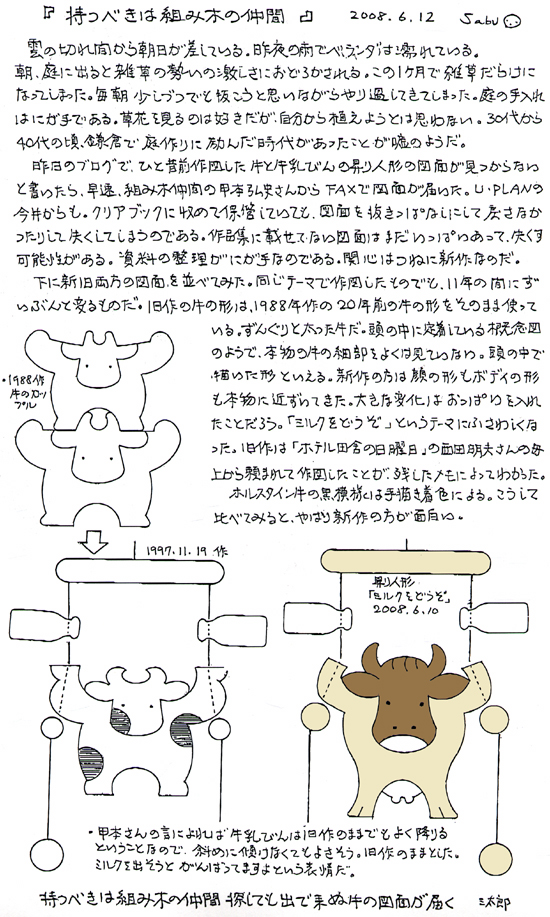 『持つべきは組み木の仲間』 2008.6.12 Sabu
雲の切れ間から朝日が差している。昨夜の雨でベランダは濡れている。
朝、庭に出ると雑草の勢いの激しさにおどろかされる。この1ヶ月で雑草だらけに
なってしまった。毎朝少しづつでも抜こうと思いながらやり過してきてしまった。庭の手入れ
はにが手である。草花を見るのは好きだが、自分から植えようとは思わない。30代から
40代の頃、鎌倉で庭作りに励んだ時代があったことが嘘のようだ。
昨日のブログで、ひと昔前作図した牛と牛乳びんの昇り人形の図面が見つからない
と書いたら、早速、組み木仲間の甲本弘史さんからFAXで図面が届いた。U-PLANの
今井からも。クリアブックに収めて保管していても、図面を抜きっぱなしにして戻さなか
ったりして失くしてしまうのである。作品集に載せてない図面はまだいっぱいあって、失くす
可能性がある。資料の整理がにが手なのである。関心はつねに新作なのだ。
下に新旧両方の図面を並べてみた。同じテーマで作図したものでも、11年の間にず
いぶんと変るものだ。旧作の牛の形は、1988年作の20年前の牛の形をそのまま使って
いる。ずんぐりと太った牛だ。頭の中に定着している概念図
のようで、本物の牛の細部をよくは見ていない。頭の中で
描いた形といえる。新作の方は顔の形もボディの形
も本物に近ずいてきた。大きな変化はおっぱいを入れ
たことだろう。「ミルクをどうぞ」というテーマにふさわしくな
った。旧作は「ホテル田舎の日曜日」の西田明夫さんの母
上から頼まれて作図したことが、残したメモによってわかった。
ホルスタイン牛の黒模様は手描き着色による。こうして
比べてみると、やはり新作の方が面白い。
・1988作
牛のカップル
1997.11.19 作
昇り人形
「ミルクをどうぞ」
2008.6.10
・甲本さんの言によれば牛乳びんは旧作のままでもよく降りる
ということなので、斜めに傾けなくてもよさそう。旧作のままとした。
ミルクを出そうとがんばってますよという表情だ。
持つべきは組み木の仲間 探しても出て来ぬ牛の図面が届く 三太郎